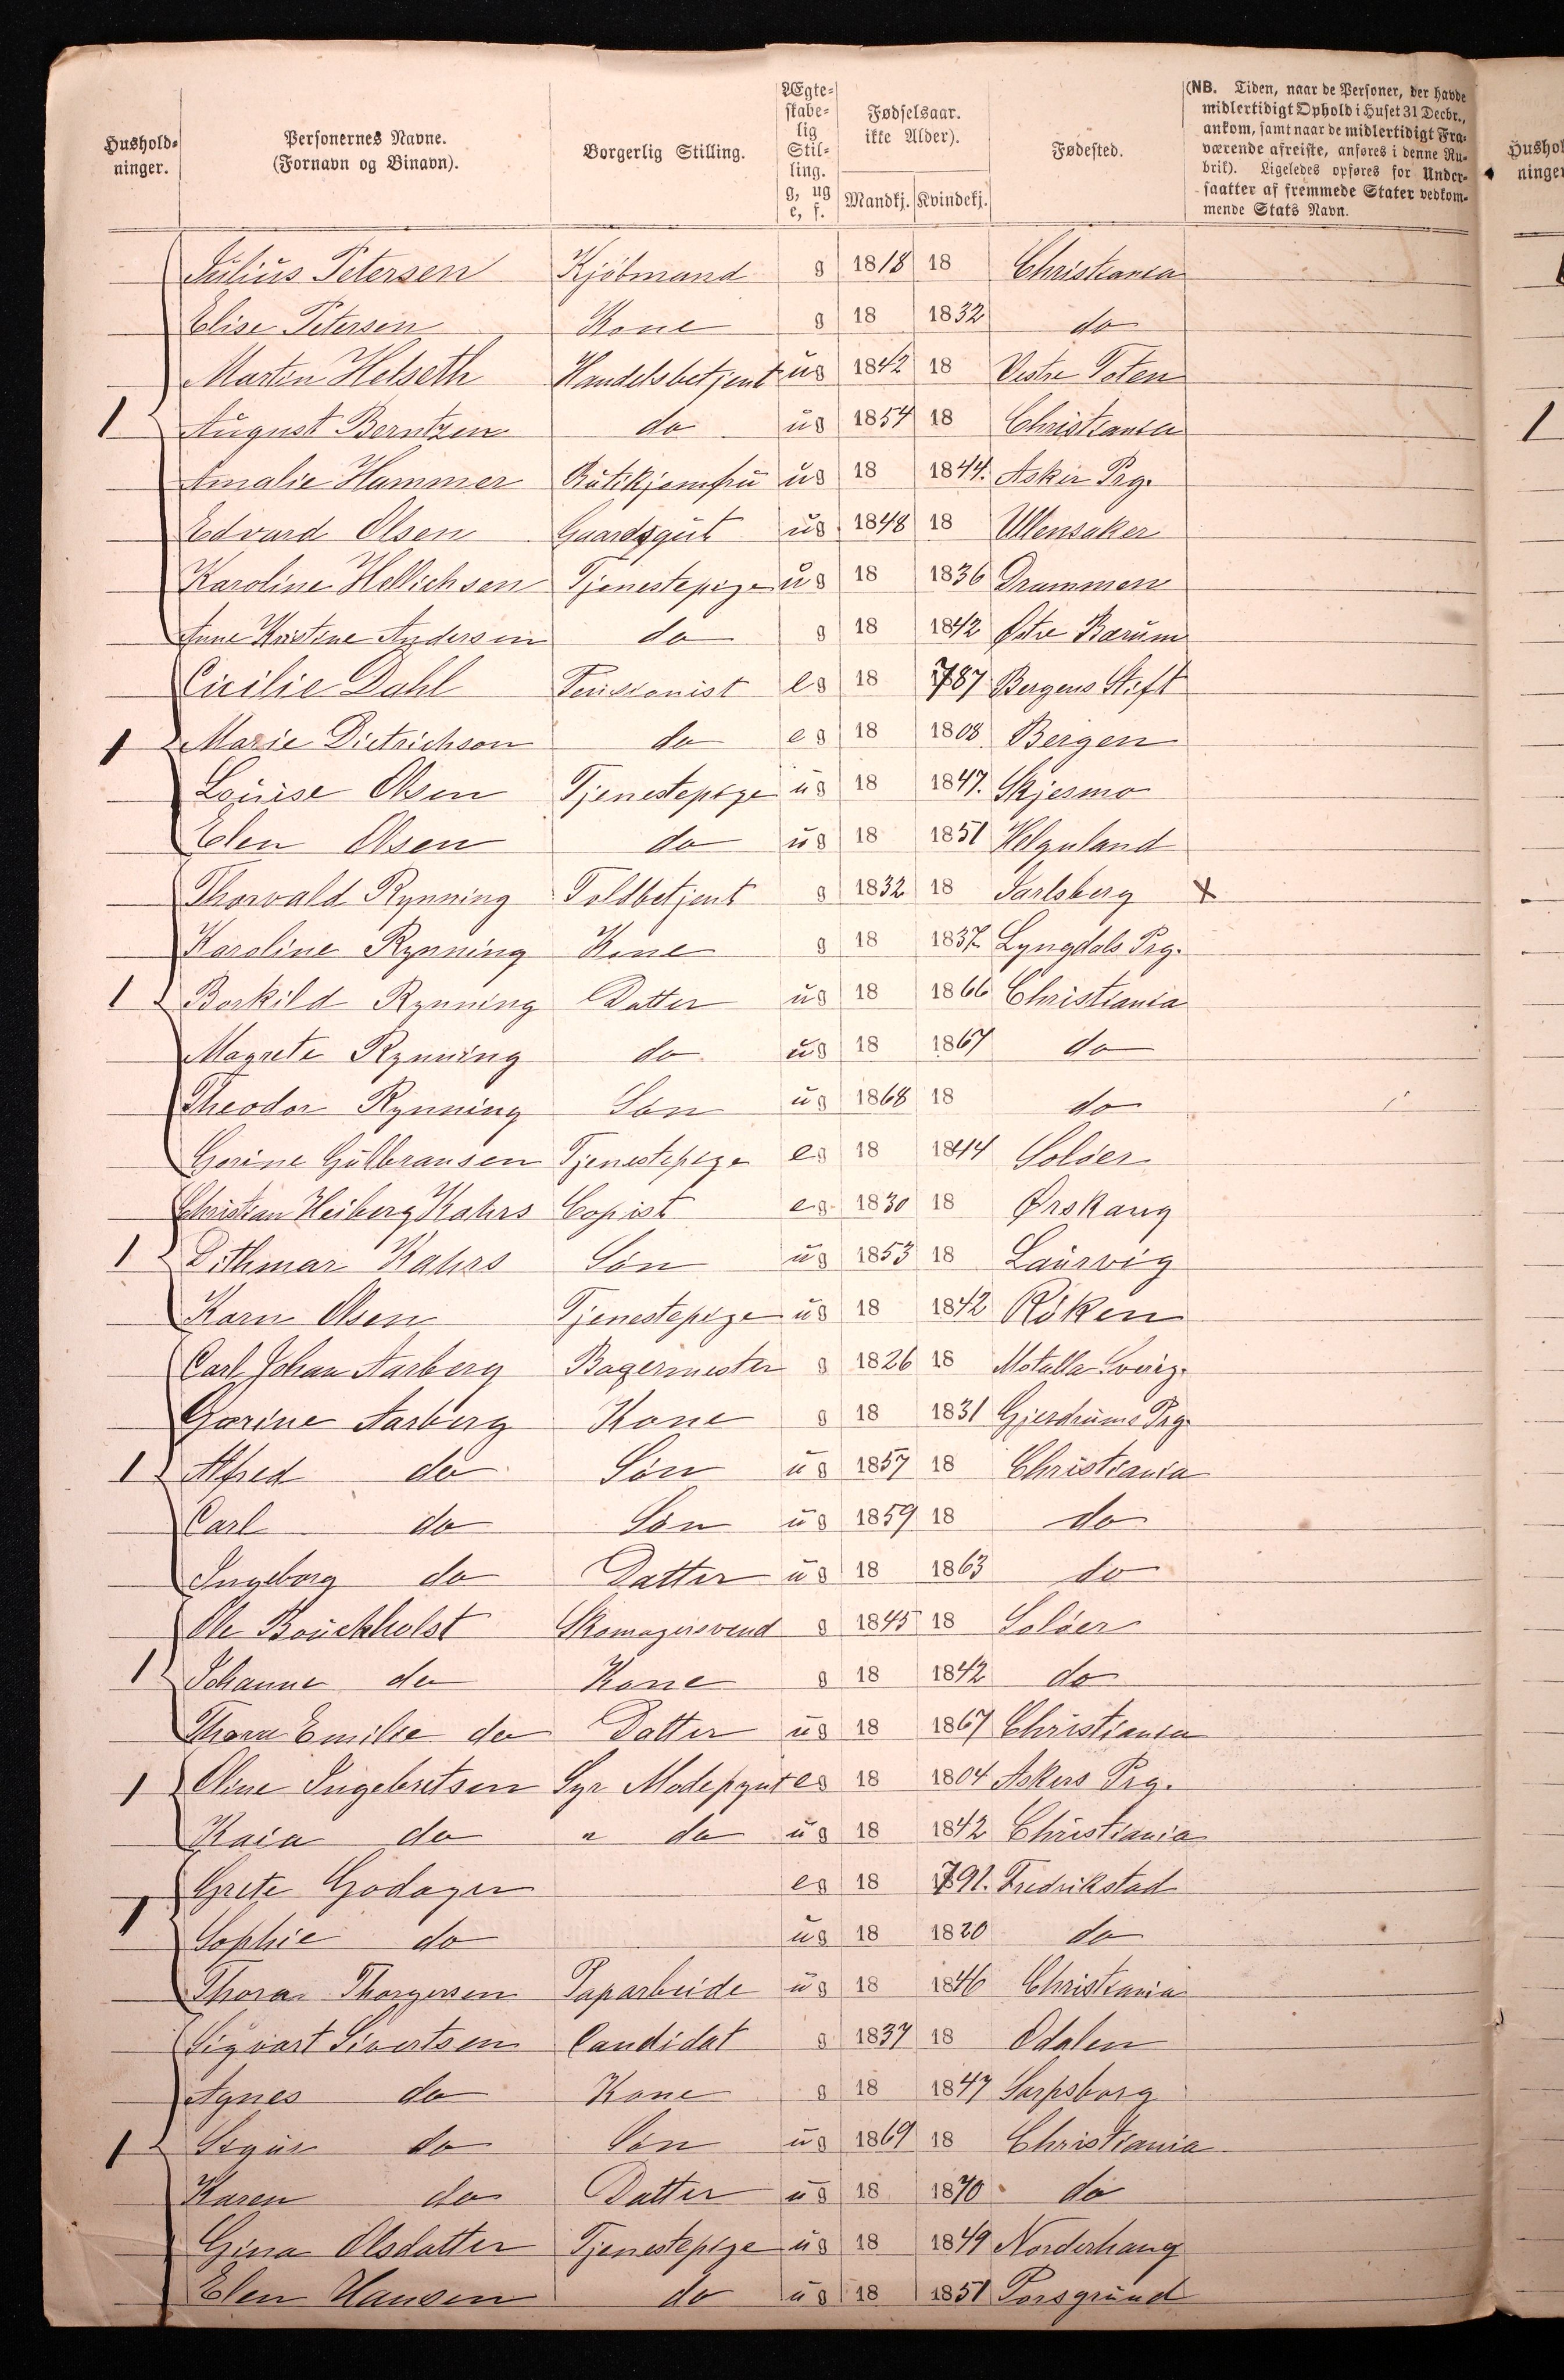 Hushold-ninger. Personernes Navne. (Fornavn og Binavn). Borgerlig Stilling. Ægte-skabe-lig Stil-ling. g, ug e, f. Fødselsaar. ikke Alder). Mandkj. Kvindekj. Fødested. (NB. Tiden, naar de Personer, der havde midlertidigt Ophold i Huset 31 Decbr., ankom, samt naar de midlertidigt Fra-værende afreiste, anføres i denne Ru-brik). Ligeledes opføres for Under-saatter af fremmede Stater vedkom-mende Stats Navn.
Julius Petersen Kjöbmand g 1818 18 Christiania
Elise Petersen Kone g 18 1832 do
Martin Helseth Handelsbetjent ug 1842 18 Vestre Toten
1 August Berntzen do ug 1854 18 Christiania
Amalie Hammer Butikjomfru ug 18 1844. Asker Prg.
Edvard Olsen Gaardsgut ug 1848 18 Ullensaker
Karoline Hellichsen Tjenestepige ug 18 1836 Drammen
Anne Kristine Andersen do g 18 1842 Østre Bærum
Cicilie Dahl Pensionist eg 18 1787 Bergens Stift
1 Marie Dietrichson do eg 18 1808 Bergen
Louise Olsen Tjenestepige ug 18 1847. Skjesmo
Elen Olsen do ug 18 1851 Helguland
Thorvald Rynning Toldbetjent g 1832 18 Jarlsberg X
Karoline Rynning Kone g 18 1837 Lyngdals Prg.
1 Borkild Rynning Datter ug 18 1866 Christiania
Magrete Rynning do ug 18 1867 do
Theodor Rynning Søn ug 1868 18 do
Gorine Gulbransen Tjenestepige eg 18 1844 Solöer
Christian Heiberg Kahrs Copist eg 1830 18 Ørskaug
1 Dithmar Kahrs Søn ug 1853 18 Laurvig
Karn Olsen Tjenestepige ug 18 1842 Röken
Carl Johan Aarberg Bagermester g 1826 18 Motalla Sverig.
Gorine Aarberg Kone g 18 1831 Gjerdrums Prg.
1 Alfred do Sön ug 1857 18 Christiania
Carl do Sön ug 1859 18 do
Ingeborg do Datter ug 18 1863 do
Ole Bouckholst Skomagersvend g 1845 18 Solöer
1 Johanne do Kone g 18 1842 do
Thora Emilie do Datter ug 18 1867 Christiania
1 Oline Ingebretsen Syr Modepynt eg 18 1804 Askers Prg.
Kaia do " do ug 18 1842 Christiania
Grete Godager eg 18 1791. Fredrikstad
1 Sophie do ug 18 1820 do
Thora Thorgersen Paparbeide ug 18 1846 Christiania
Sigvart Sivertsen Candidat g 1837 18 Odalen
Agnes do Kone g 18 1847 Sarpsborg
1 Sigur do Sön ug 1869 18 Christiania
Karen do Datter ug 18 1870 do
Gina Olsdatter Tjenestepige ug 18 1849 Norderhaug
Elen Hansen do ug 18 1851 Porsgrund